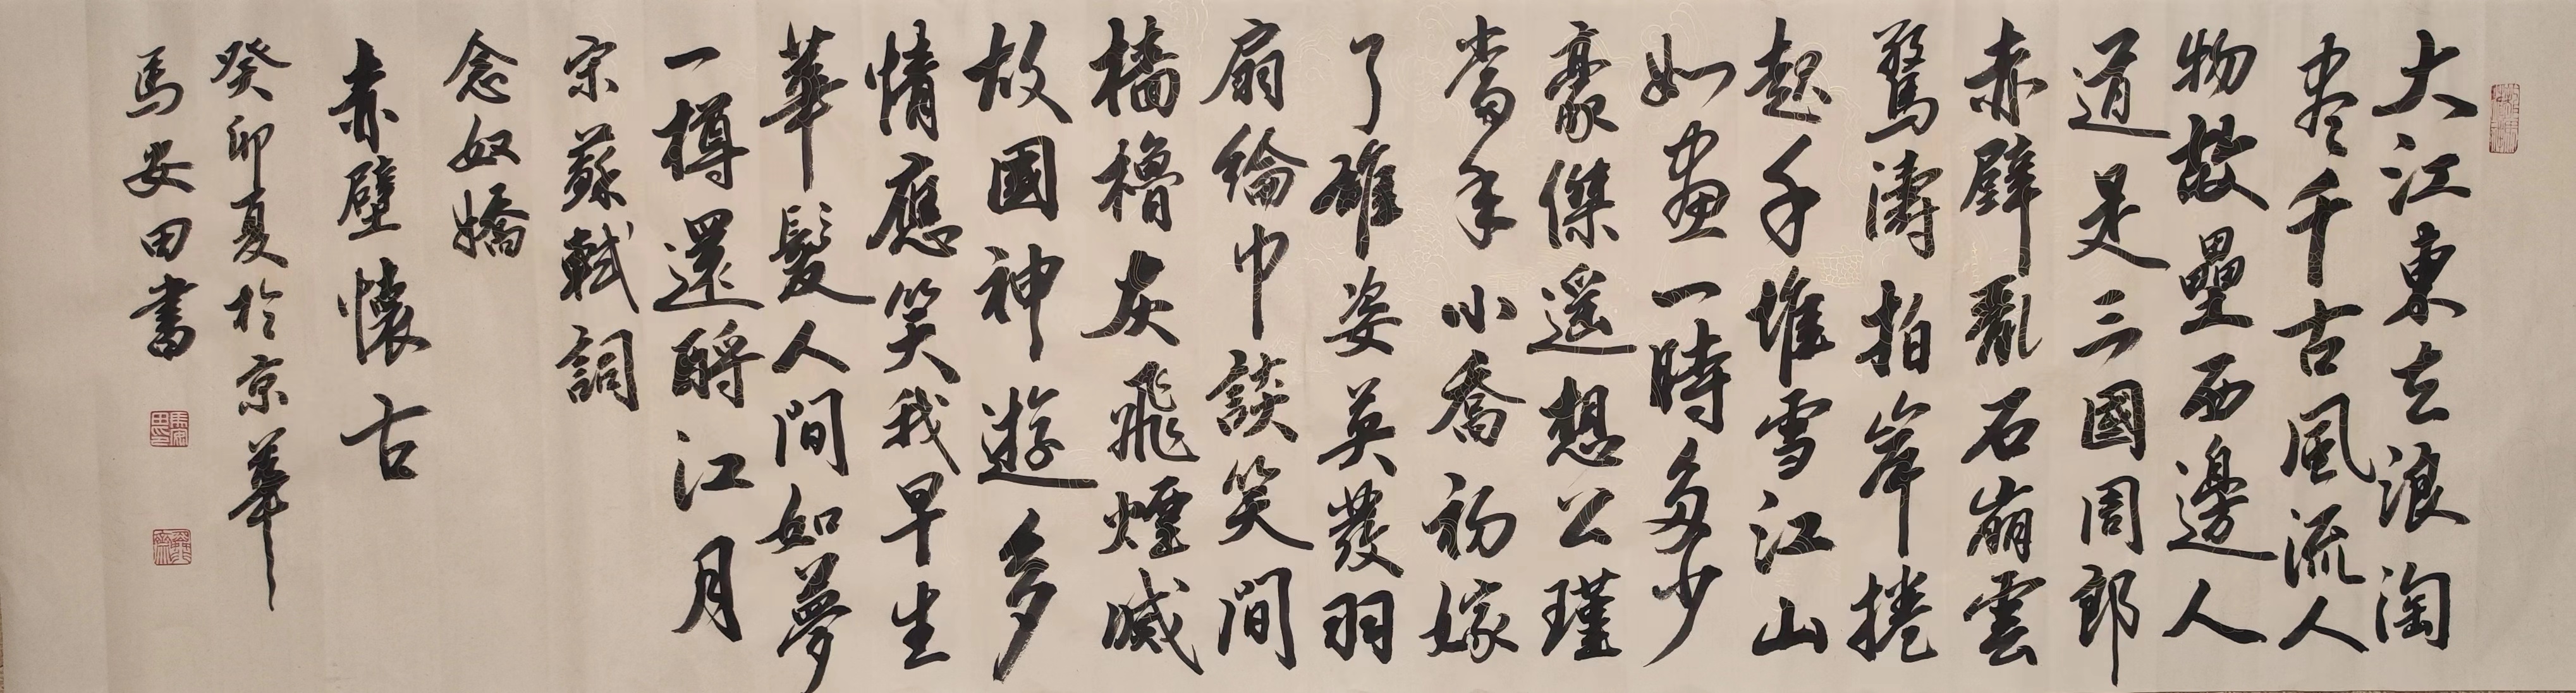 大江東去浪淘
尽千古風流人
物故壘西邊人
道是三國周郎
赤壁亂石崩雲
驚濤拍岸捲
起千堆雪江山
如畫一時多少
豪傑遥想公瑾
當年小喬初嫁
了雄姿英發羽
扇綸巾談笑間
檣櫓灰飛煙滅
故國神遊多
情應笑我早生
華髮人間如夢
一樽還酹江月
宗蘇軾詞
念奴嬌
赤壁懷古
癸卯夏於京華
馬安田書